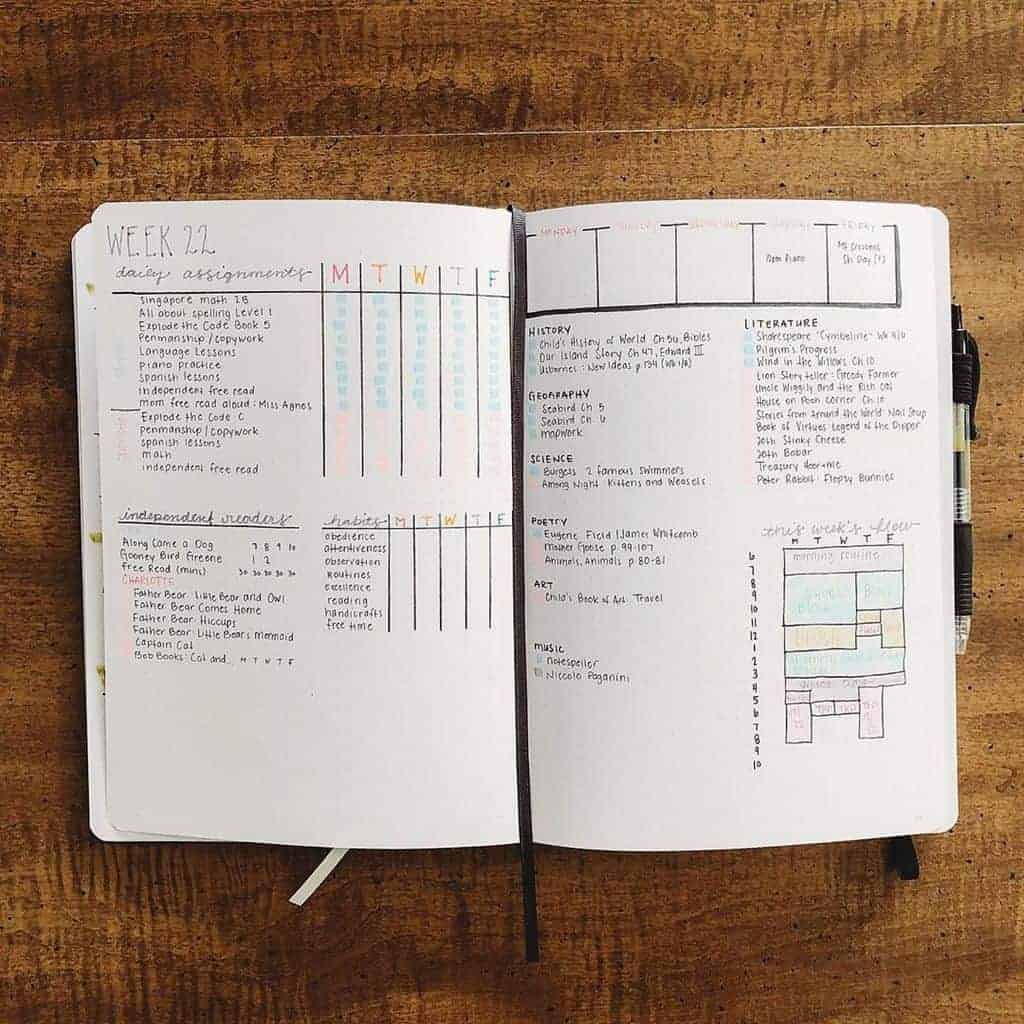 WEEK 22
daily assignments M T W T F
Singapore math 2B
All about spelling Level 1
Explode the Code Book 5
Penmanship/copywork
Language Lessons
piano practice
spanish lessons
independent free read
mom free read aloud: Miss Agnes
Explode the Code: C
penmanship/copywork
spanish lessons
math
independent free read
independent readers
Along Came a Dog 7 8 9 10
Gooney Bird Greene 1 2
Free Read (mins) 30 30 30 30 30
CHARLOTTE
Father Bear: Little Bear and Owl
Father Bear Comes Home
Father Bear: Hiccups
Father Bear: Little Bear's Mermaid
Captain Cat
Bob Books: Cat and M T W T F
habits M T W T F
obedience
attentiveness
observation
routines
excellence
reading
handicrafts
free time
MONDAY TUESDAY WEDNESDAY THURSDAY FRIDAY
piano
Day
HISTORY
Child's History of World Ch 56, Bibles
Our Island Story Ch 47, Edward III
Usbornes: New Ideas p 134 (wk 1/6)
GEOGRAPHY
Seabird Ch. 5
Seabird Ch. 6
mapwork
SCIENCE
Burgess 2 famous swimmers
Among Night: Kittens and Weasels
POETRY
Eugene Field/James Whitcomb
Mother Goose p. 99-107
Animals, Animals p 80-81
ART
Child's Book of Art: Travel
MUSIC
notespeller
Niccolo Paganini
LITERATURE
Shakespeare "Cymbeline" wk 4/6
Pilgrim's Progress
Wind in the Willows Ch 10
Lion Storyteller: Greedy Farmer
Uncle Wiggily and the
House on Pooh Corner Ch 10
Stories from Around the World: Nail Soup
Book of Virtues Legend of the Dipper
20th Stinky Cheese
20th Babar
Treasury
Peter Rabbit: Flopsy Bunnies
this week's flow
M T W T F
morning routine
6
7
8
9
10
11
12
1
2
3
4
5
6
7
8
9
10